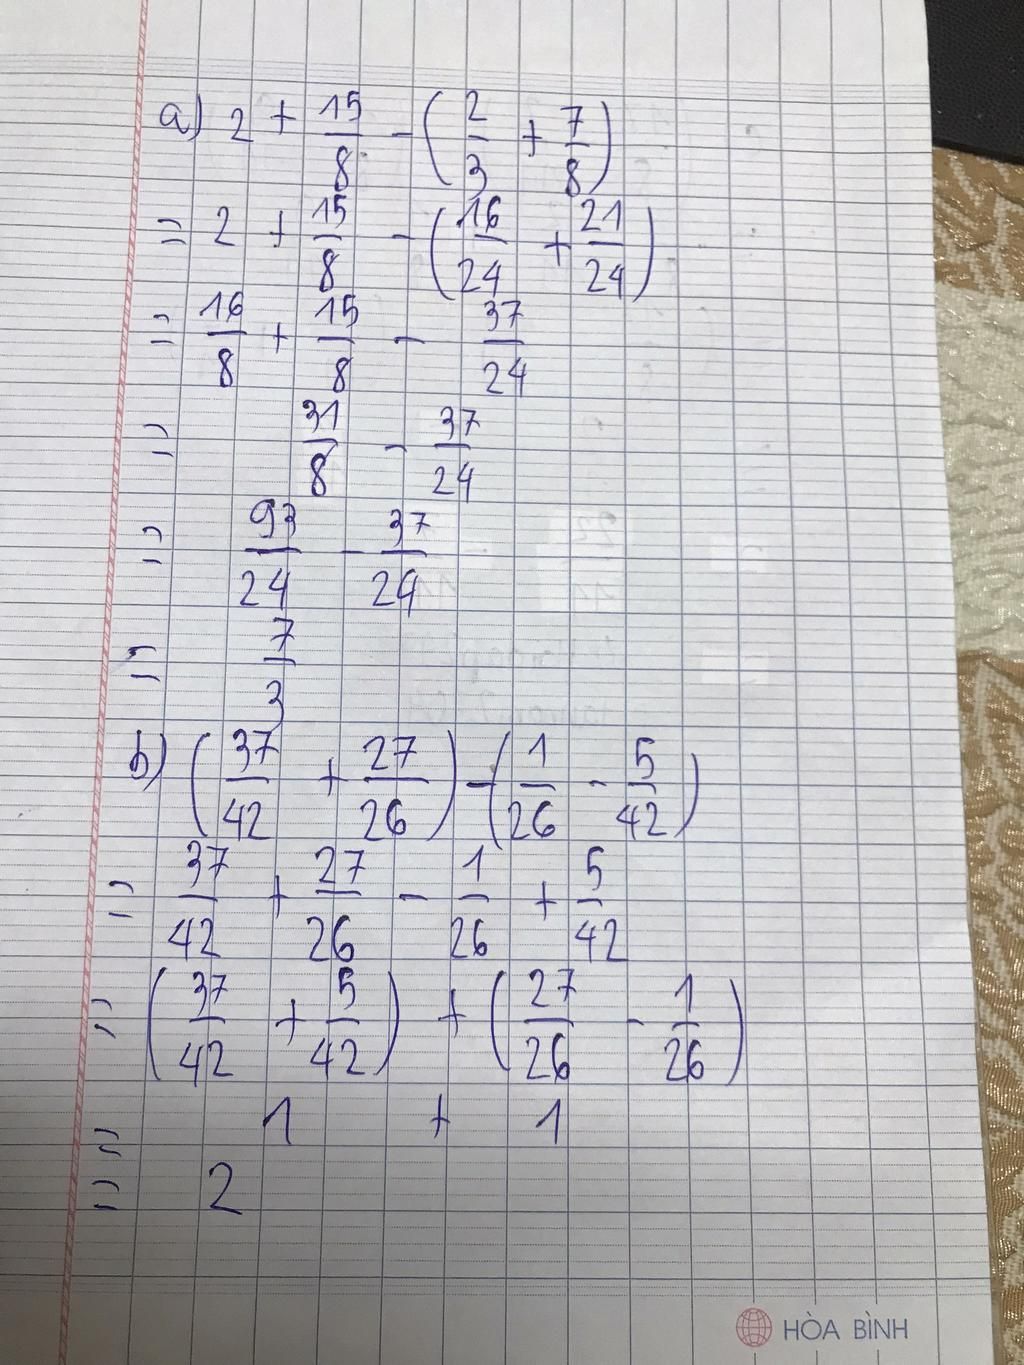 a) 2 + 15/8 - (2/3 + 7/8)
= 2 + 15/8 - (16/24 + 21/24)
= 16/8 + 15/8 - 37/24
= 31/8 - 37/24
= 93/24 - 37/24
= 7/3
b) (37/42 + 27/26) - (1/26 - 5/42)
= 37/42 + 27/26 - 1/26 + 5/42
= (37/42 + 5/42) + (27/26 - 1/26)
= 1 + 1
= 2
HÒA BÌNH